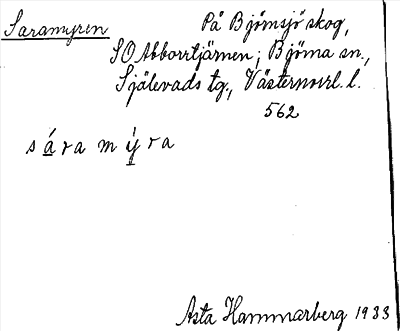 Saramyren På Björnsjö skog,
SO Abborrtjärnen; Björna sn.,
Själevads tg., Västernorrl. l.
562
sára mýra
Asta Hammarberg 1933